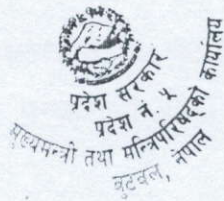 प्रदेश सरकार
प्रदेश नं. ५
मुख्यमन्त्री तथा मन्त्रिपरिषद्को कार्यालय
बुटवल, नेपाल